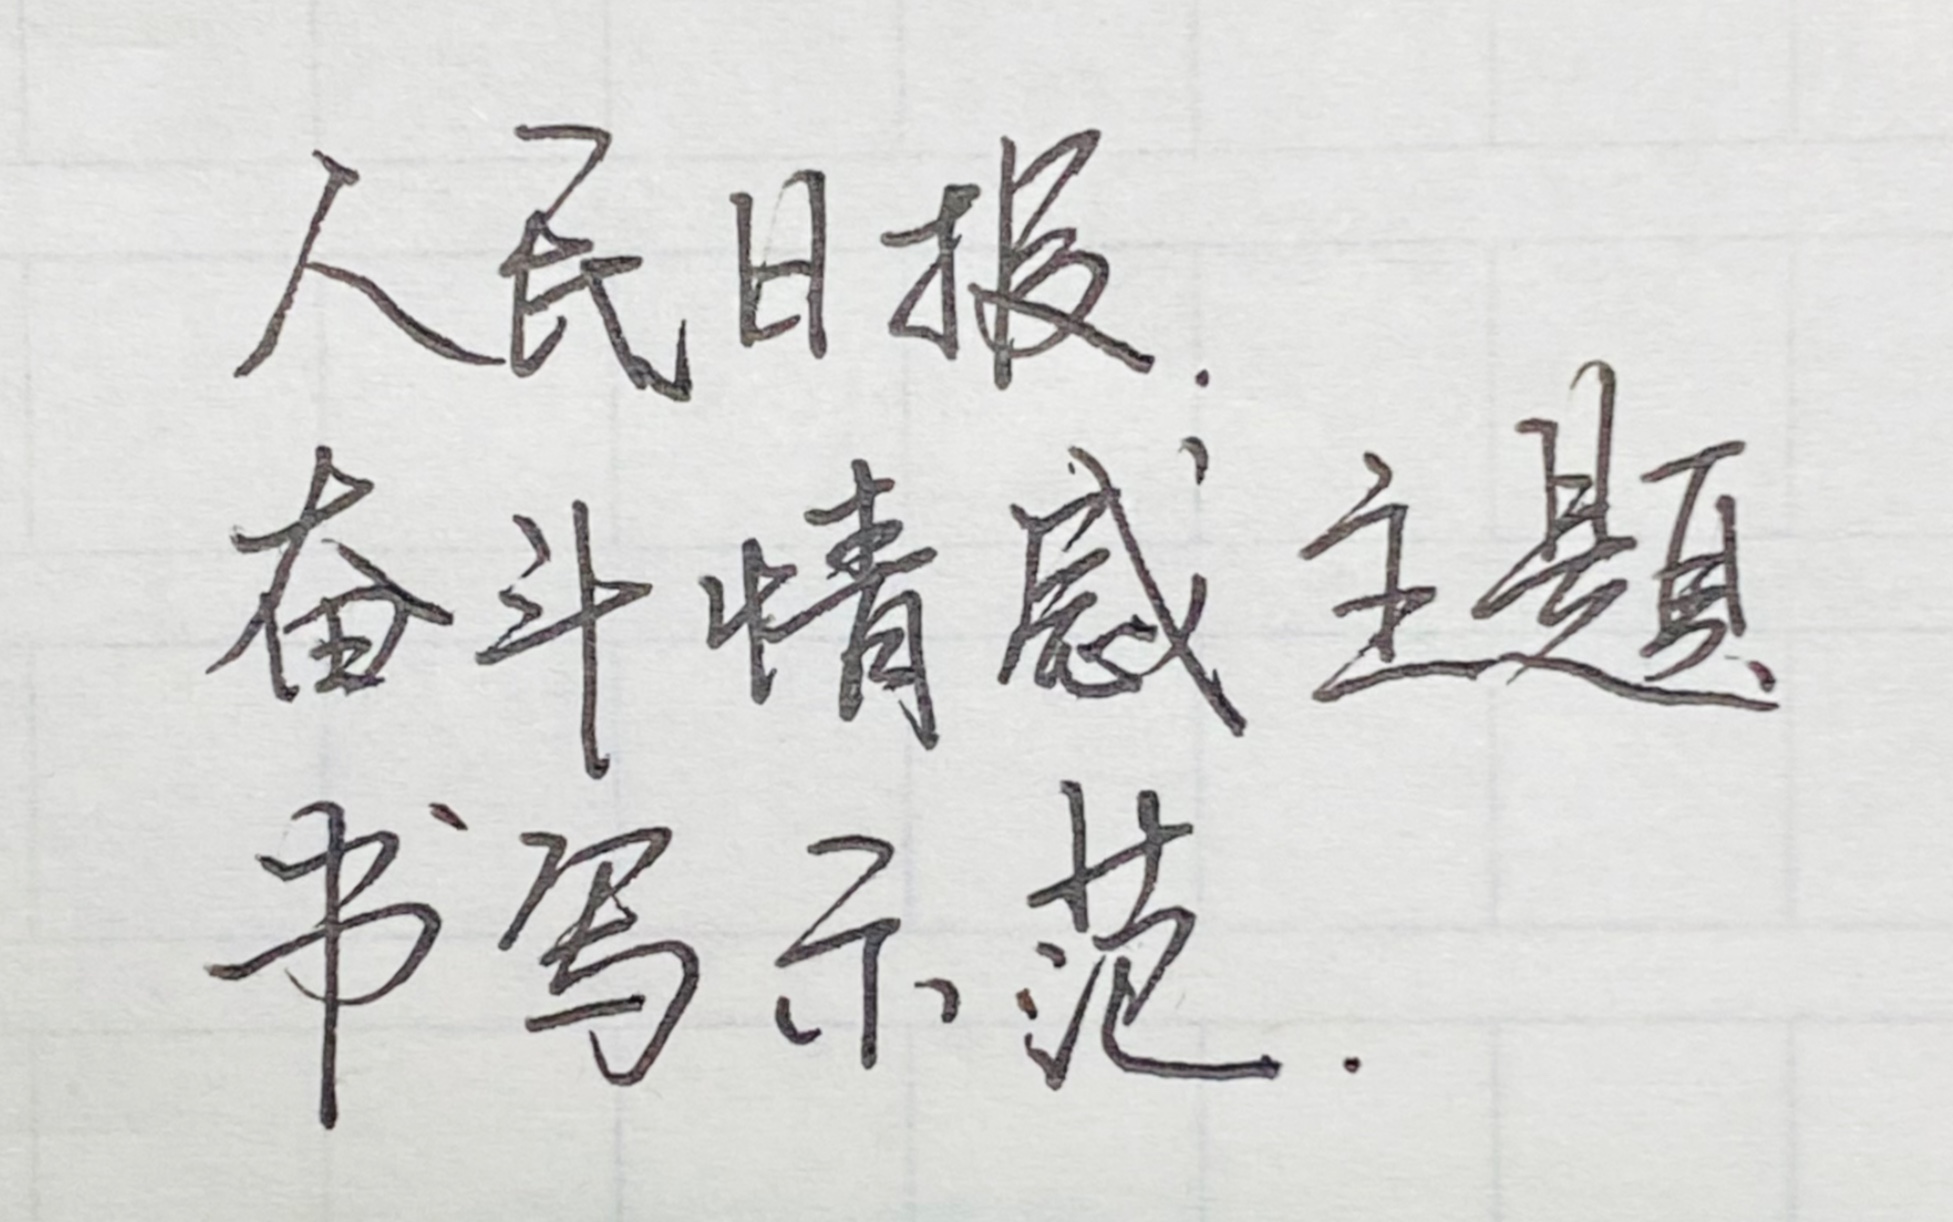 人民日报.
奋斗情感主题
书写示范.